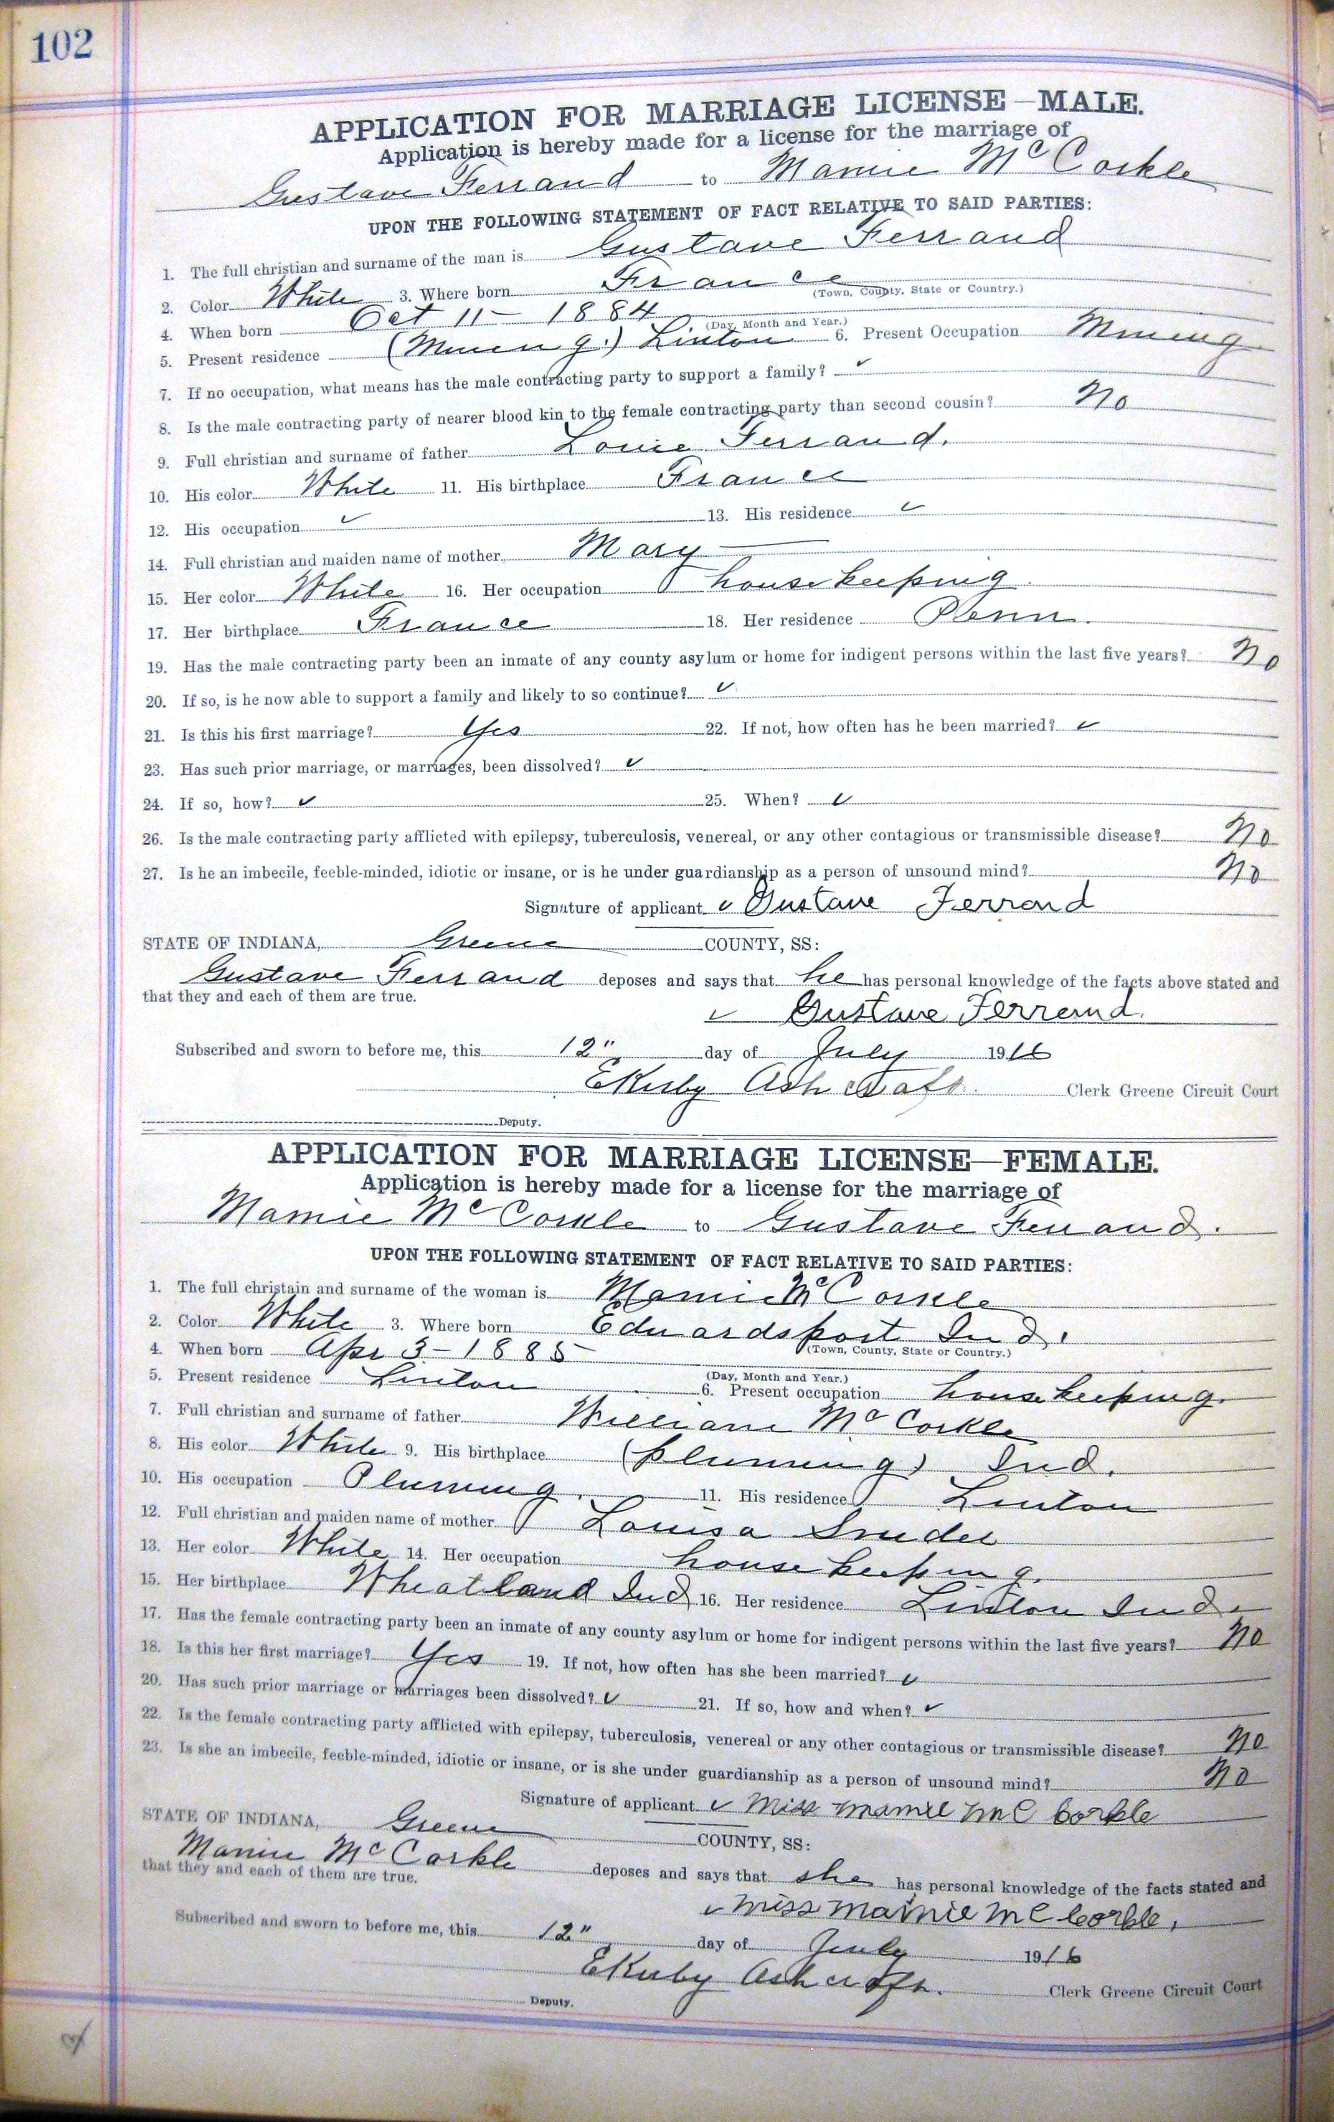 102
APPLICATION FOR MARRIAGE LICENSE—MALE.
Application is hereby made for a license for the marriage of
Gustave Ferrand to Mamie McCorkle
UPON THE FOLLOWING STATEMENT OF FACT RELATIVE TO SAID PARTIES:
1. The full christian and surname of the man is Gustave Ferrand
2. Color White 3. Where born France
(Town, County, State or Country.)
4. When born Oct 11 - 1884
(Day, Month and Year.)
5. Present residence (Mineing.) Linton 6. Present Occupation Mineing
7. If no occupation, what means has the male contracting party to support a family? ✓
8. Is the male contracting party of nearer blood kin to the female contracting party than second cousin? No
9. Full christian and surname of father Louie Ferrand.
10. His color White 11. His birthplace France
12. His occupation ✓ 13. His residence ✓
14. Full christian and maiden name of mother Mary —
15. Her color White 16. Her occupation housekeeping
17. Her birthplace France 18. Her residence Penn.
19. Has the male contracting party been an inmate of any county asylum or home for indigent persons within the last five years? No
20. If so, is he now able to support a family and likely to so continue? ✓
21. Is this his first marriage? Yes 22. If not, how often has he been married? ✓
23. Has such prior marriage, or marriages, been dissolved? ✓
24. If so, how? ✓ 25. When? ✓
26. Is the male contracting party afflicted with epilepsy, tuberculosis, venereal, or any other contagious or transmissible disease? No
27. Is he an imbecile, feeble-minded, idiotic or insane, or is he under guardianship as a person of unsound mind? No
Signature of applicant ✓ Gustave Ferrand
STATE OF INDIANA, Greene COUNTY, SS:
Gustave Ferrand deposes and says that he has personal knowledge of the facts above stated and
that they and each of them are true.
✓ Gustave Ferrand.
Subscribed and sworn to before me, this 12" day of July 1916
E Kirby Ashcraft Clerk Greene Circuit Court
Deputy.
APPLICATION FOR MARRIAGE LICENSE—FEMALE.
Application is hereby made for a license for the marriage of
Mamie McCorkle to Gustave Ferrand.
UPON THE FOLLOWING STATEMENT OF FACT RELATIVE TO SAID PARTIES:
1. The full christain and surname of the woman is Mamie McCorkle
2. Color White 3. Where born Edwardsport Ind.
(Town, County, State or Country.)
4. When born Apr 3 - 1885
(Day, Month and Year.)
5. Present residence Linton 6. Present occupation housekeeping.
7. Full christian and surname of father William McCorkle
8. His color White 9. His birthplace (pluming) Ind.
10. His occupation Pluming. 11. His residence Linton
12. Full christian and maiden name of mother Louisa
13. Her color White 14. Her occupation housekeeping.
15. Her birthplace Wheatland Ind 16. Her residence Linton Ind.
17. Has the female contracting party been an inmate of any county asylum or home for indigent persons within the last five years? No
18. Is this her first marriage? Yes 19. If not, how often has she been married? ✓
20. Has such prior marriage or marriages been dissolved? ✓ 21. If so, how and when? ✓
22. Is the female contracting party afflicted with epilepsy, tuberculosis, venereal or any other contagious or transmissible disease? No
23. Is she an imbecile, feeble-minded, idiotic or insane, or is she under guardianship as a person of unsound mind? No
Signature of applicant ✓ Miss Mamie McCorkle
STATE OF INDIANA, Greene COUNTY, SS:
Mamie McCorkle deposes and says that she has personal knowledge of the facts stated and
that they and each of them are true.
✓ Miss Mamie McCorkle.
Subscribed and sworn to before me, this 12" day of July 1916
E Kirby Ashcraft. Clerk Greene Circuit Court
Deputy.